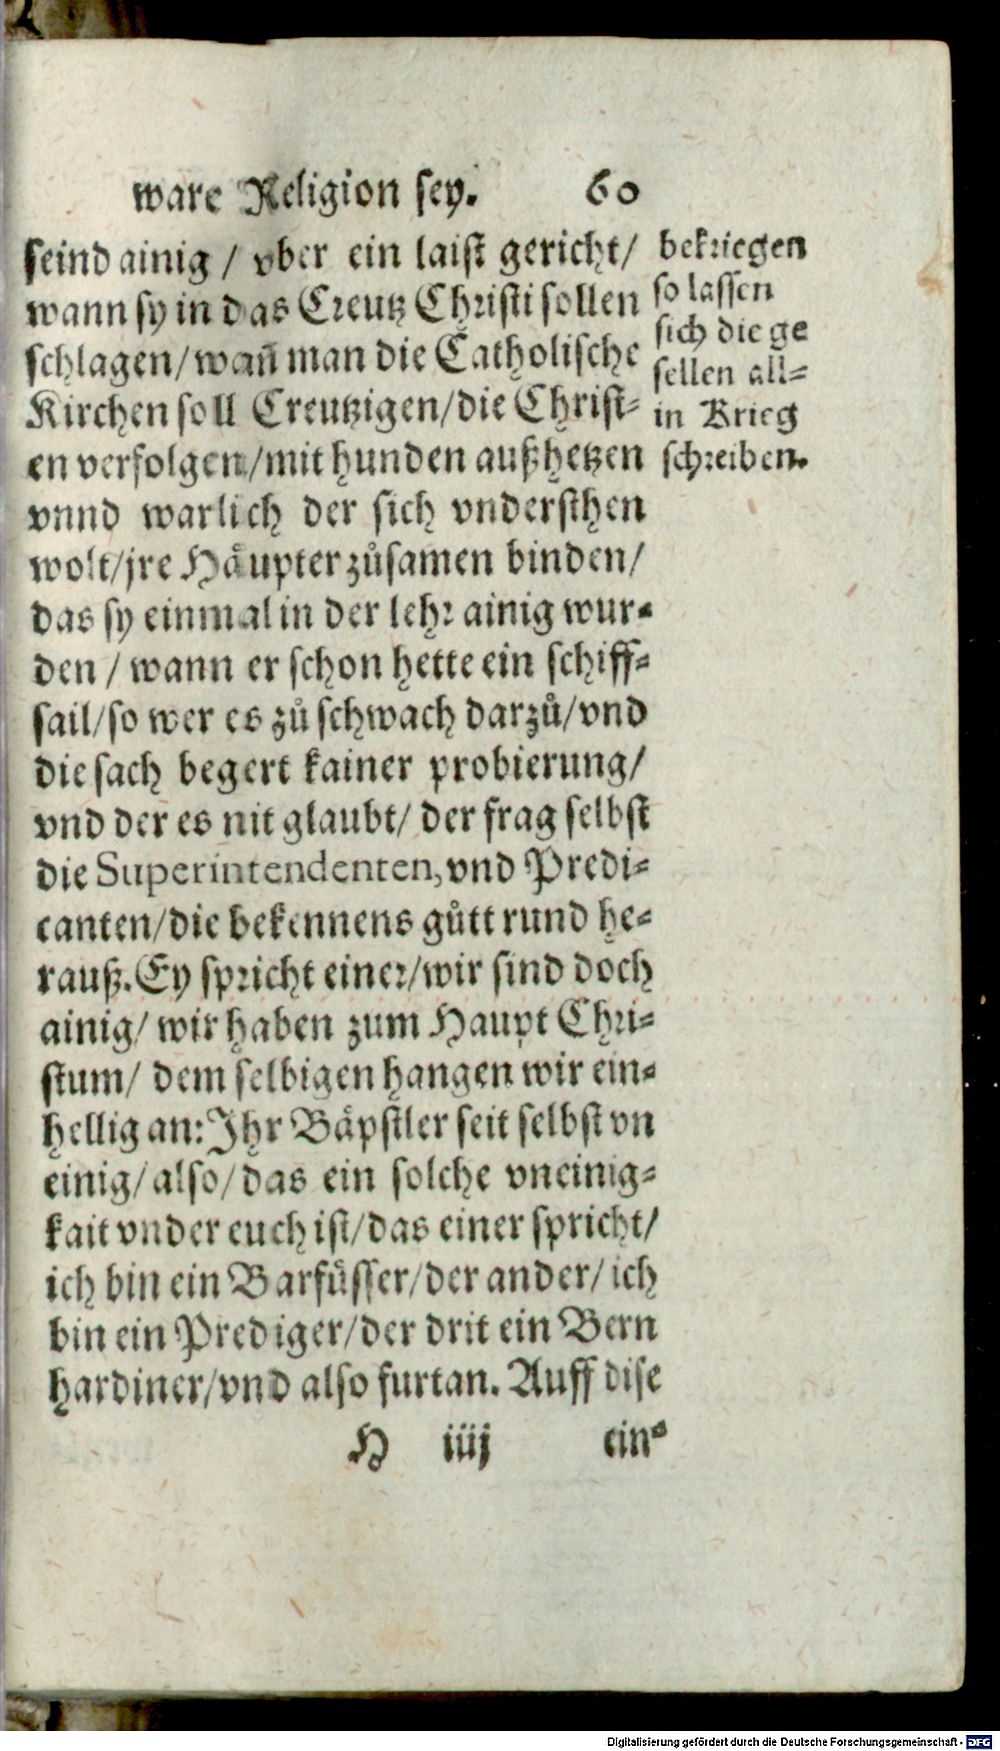 ware Religion sey. 60
seind ainig / vber ein laist gericht /
wann sy in das Creutz Christi sollen
schlagen / wañ man die Catholische
Kirchen soll Creutzigen / die Christ-
en verfolgen / mit hunden außhetzen
vnnd warlich der sich vndersthen
wolt / jre Häupter zůsamen binden /
das sy einmal in der lehr ainig wur-
den / wann er schon hette ein schiff-
sail / so wer es zů schwach darzů / vnd
die sach begert kainer probierung /
vnd der es nit glaubt / der frag selbst
die Superintendenten, vnd Predi-
canten / die bekennens gůtt rund he-
rauß. Ey spricht einer / wir sind doch
ainig / wir haben zum Haupt Chri-
stum / dem selbigen hangen wir ein-
hellig an: Ihr Bäpstler seit selbst vn
einig / also / das ein solche vneinig-
kait vnder euch ist / das einer spricht /
ich bin ein Barfüsser / der ander / ich
bin ein Prediger / der drit ein Bern
hardiner / vnd also furtan. Auff dise
H iiij ein-
bekriegen
so lassen
sich die ge
sellen all-
in Krieg
schreiben.
Digitalisierung gefördert durch die Deutsche Forschungsgemeinschaft - DFG